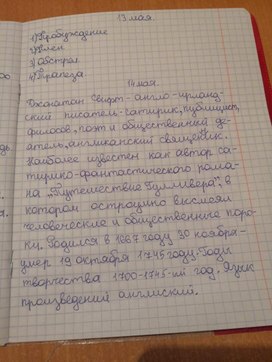 13 мая.
1) Пробуждение
2) Член
3) Абстрал
4) Трапеза
14 мая.
Джонатан Свифт - англо-ирланд-
ский писатель-сатирик, публицист,
философ, поэт и общественный де-
ятель, англиканский священник.
Наиболее известен как автор са-
тирико-фантастического рома-
на „Путешествие Гулливера", в
котором остроумно высмеял
человеческие и общественные поро-
ки. Родился в 1667 году 30 ноября -
умер 19 октября 1745 году. Годы
творчества 1700-1745-ый год. Язык
произведений английский.